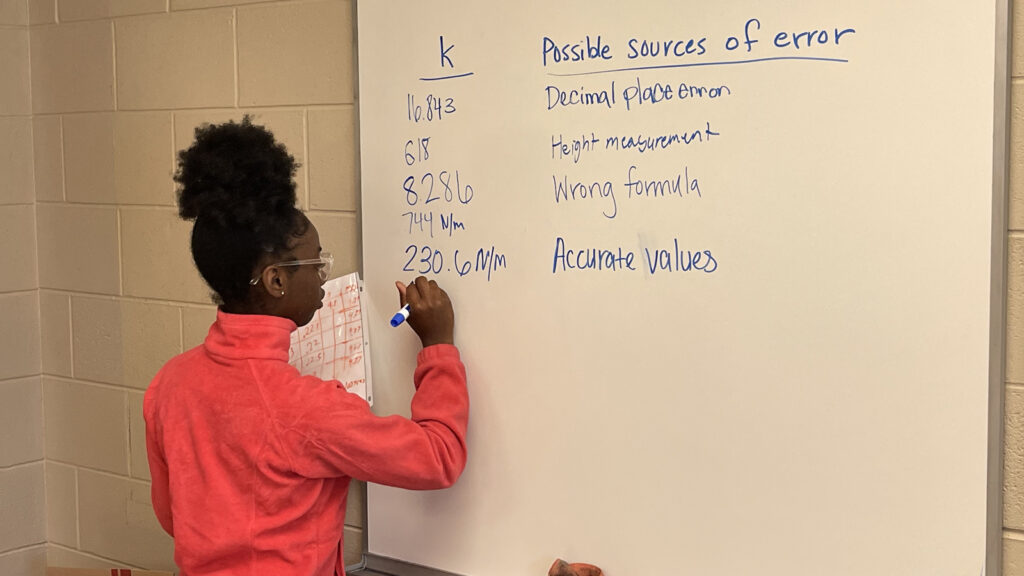 k Possible sources of error
16.843 Decimal place error
618 Height measurement
8286 Wrong formula
744 N/m
230.6 N/m Accurate values